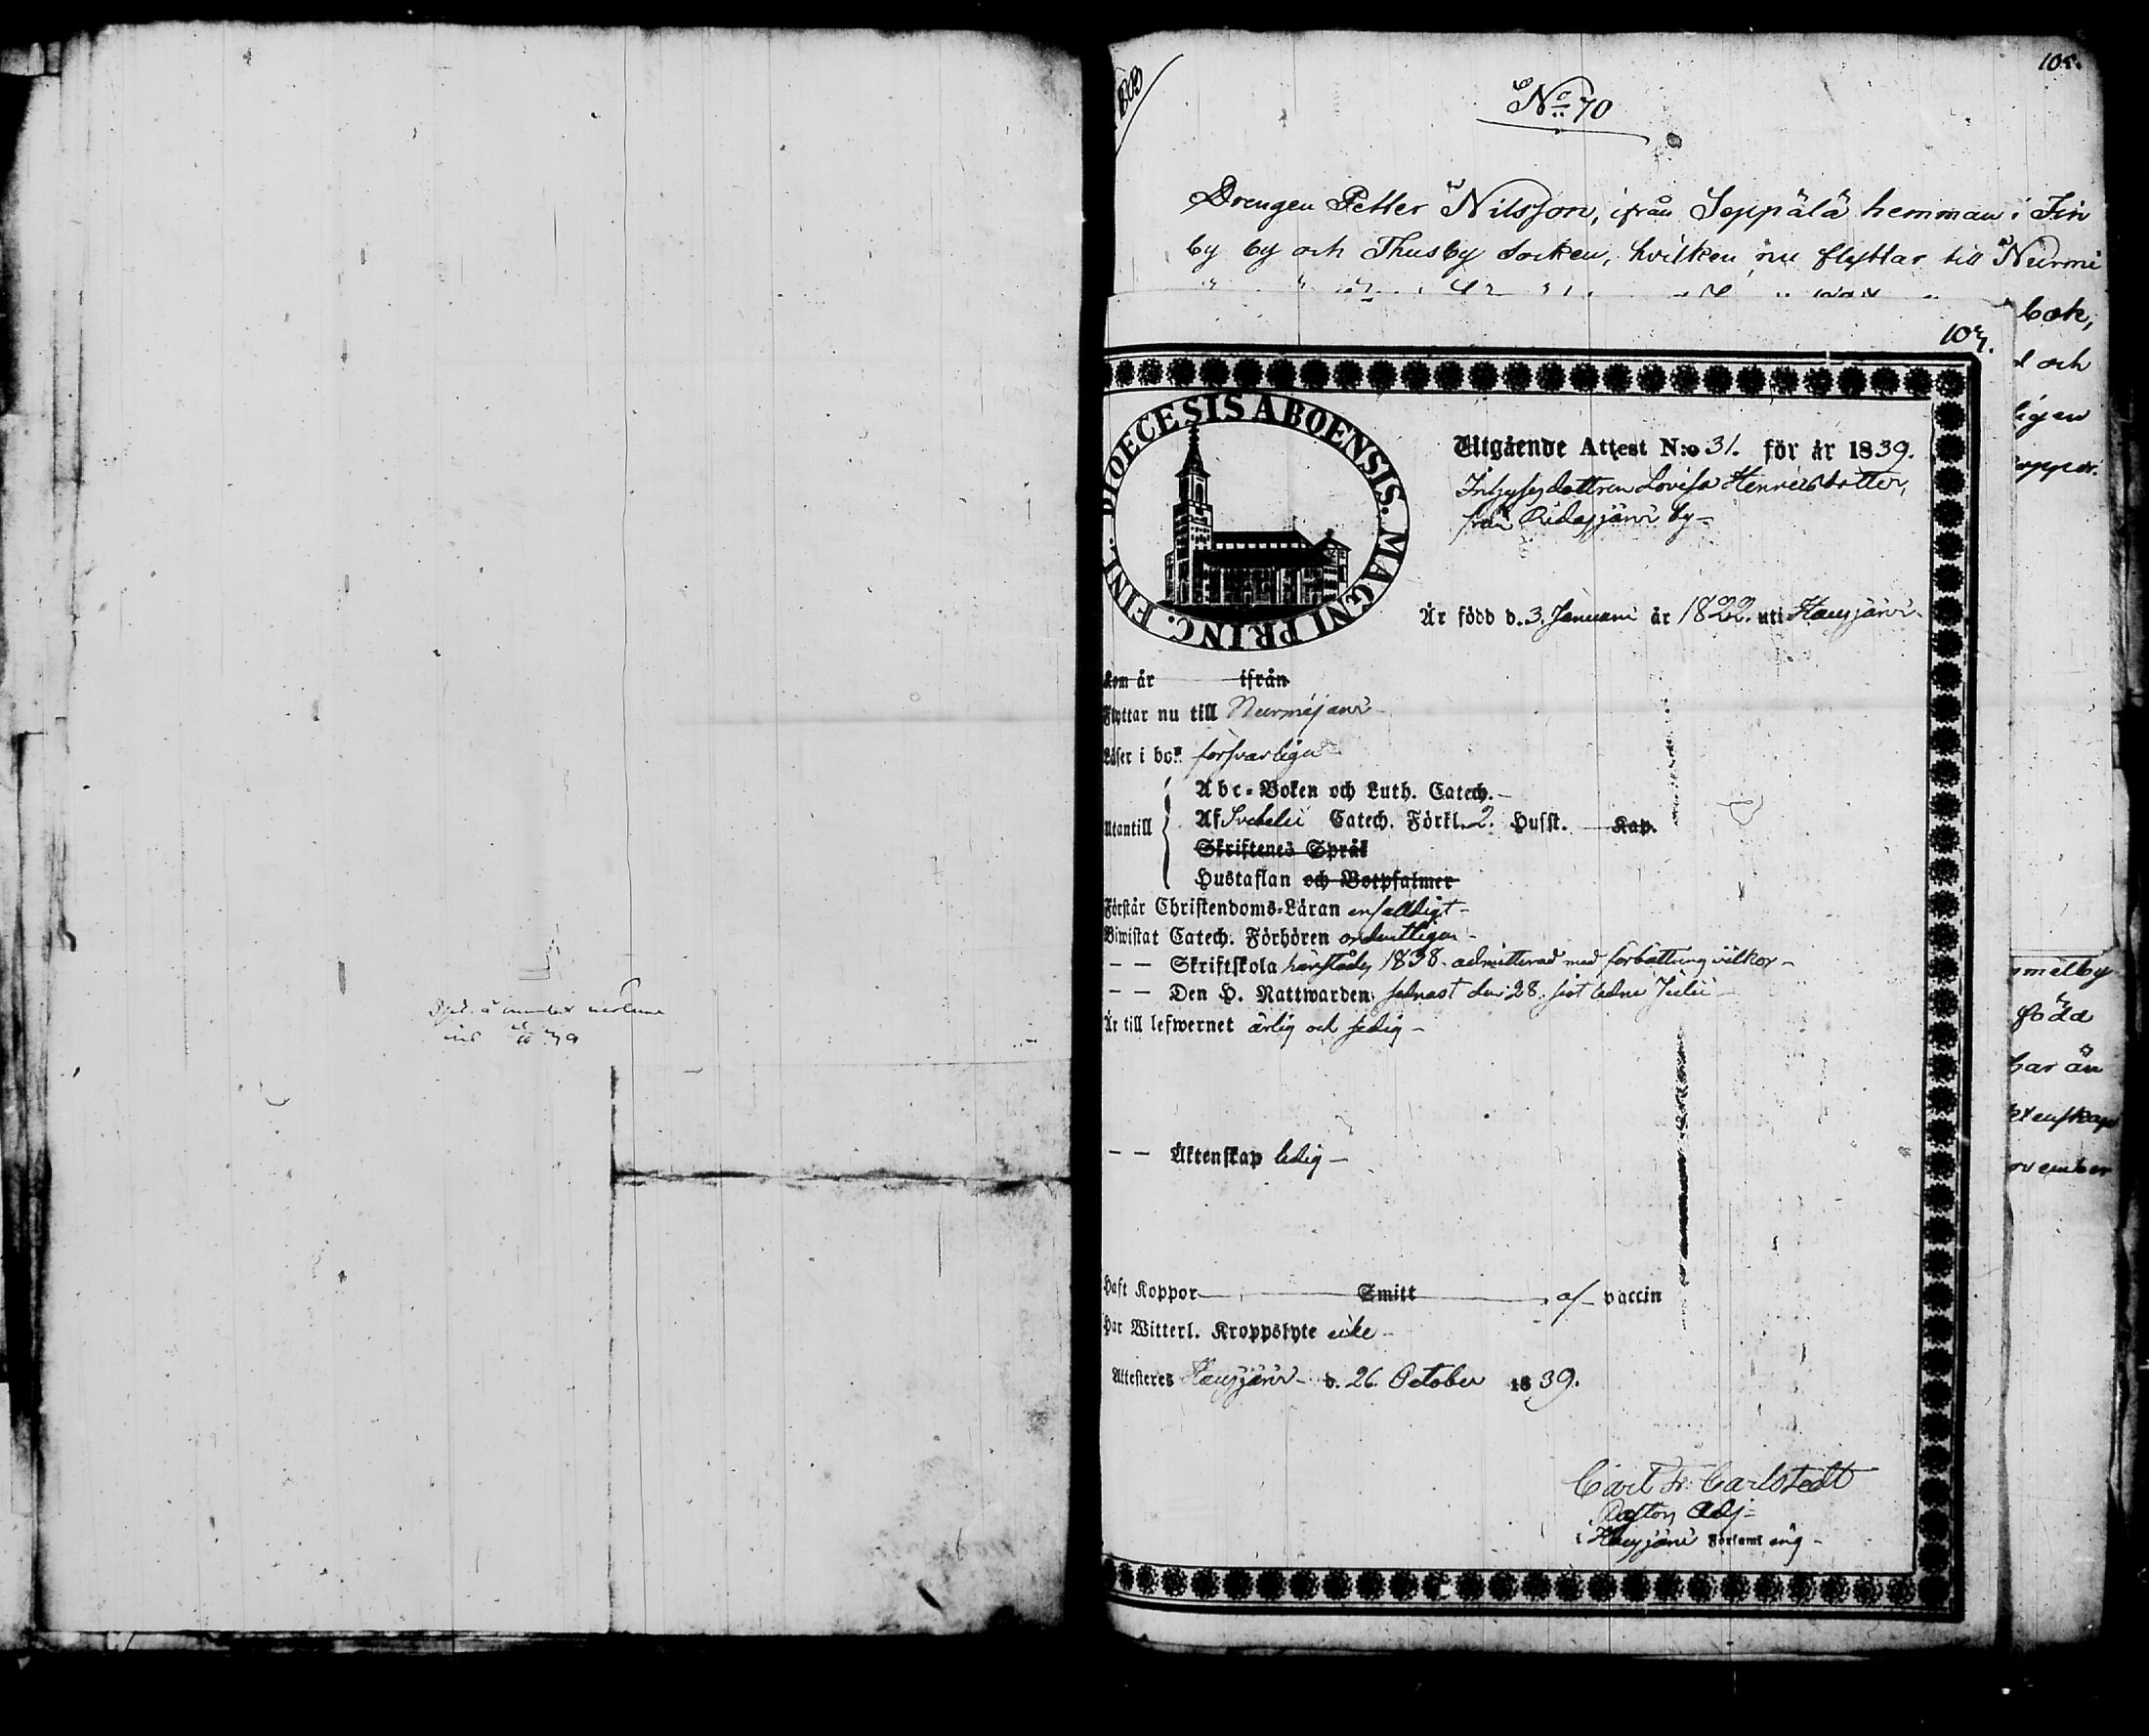 105.
No 70
Drengen Petter Nilsson, ifrån Seppälä hemman i Fin
by by och Thusby Socken, hvilken nu flyttar till Nurmi
bok,
och
ligen
104.
DIOECESIS ABOENSIS. MAGNI PRINC. FINL.
Utgående Attest N:o 31. för år 1839.
dottren Lovisa Henricsdotter,
från Ridasjärvi by
Är född d. 3. Januari år 1822. uti Hausjärvi
Kom år ifrån
Flyttar nu till Nurmijärvi
Läser i bok försvarligen
Utantill
Abc-Boken och Luth. Catech.
Af Svebelii Catech. Förkl. 2. Hufst. Kap.
Skriftenes Språk
Hustaflan och Botpsalmer
Förstår Christendoms-Läran enfaldigt
Biwistat Catech. Förhören ordentligen
— — Skriftskola härstädes 1838. admitterad med förbättrings vilkor
— — Den H. Nattwarden senast den 28. sist ledne Julii
Är till lefwernet ärlig och sedig
— — Äktenskap ledig
Haft Koppor Smitt af vaccin
Har Witterl. Kroppslyte icke
Attesteres Hausjärvi d. 26 October 1839.
Carl Fr. Carlstedt
Pastors Adj
i Hausjärvi Församling
född
har än
ktenskap
ovember